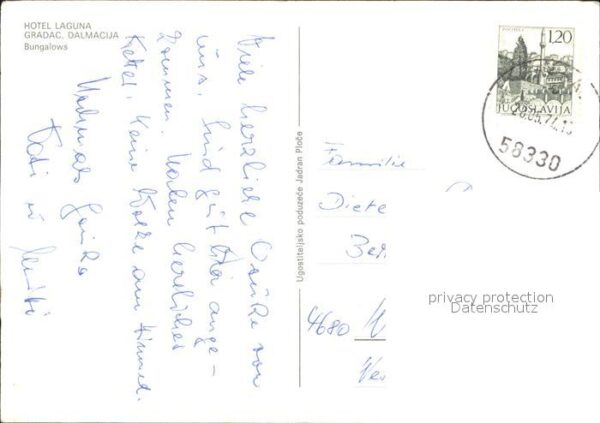 HOTEL LAGUNA
GRADAC, DALMACIJA
Bungalows
Viele herzliche Grüße von
uns. Sind gut hier ange-
kommen. Haben herrliches
Wetter. Keine Wolke am Himmel.
Nochmals Gruß
Ugostiteljsko poduzeće Jadran Ploče
POČITELJ
1,20
JUGOSLAVIJA
28.05.74.
58330
Familie
Diete
Bet
4680
privacy protection
Datenschutz